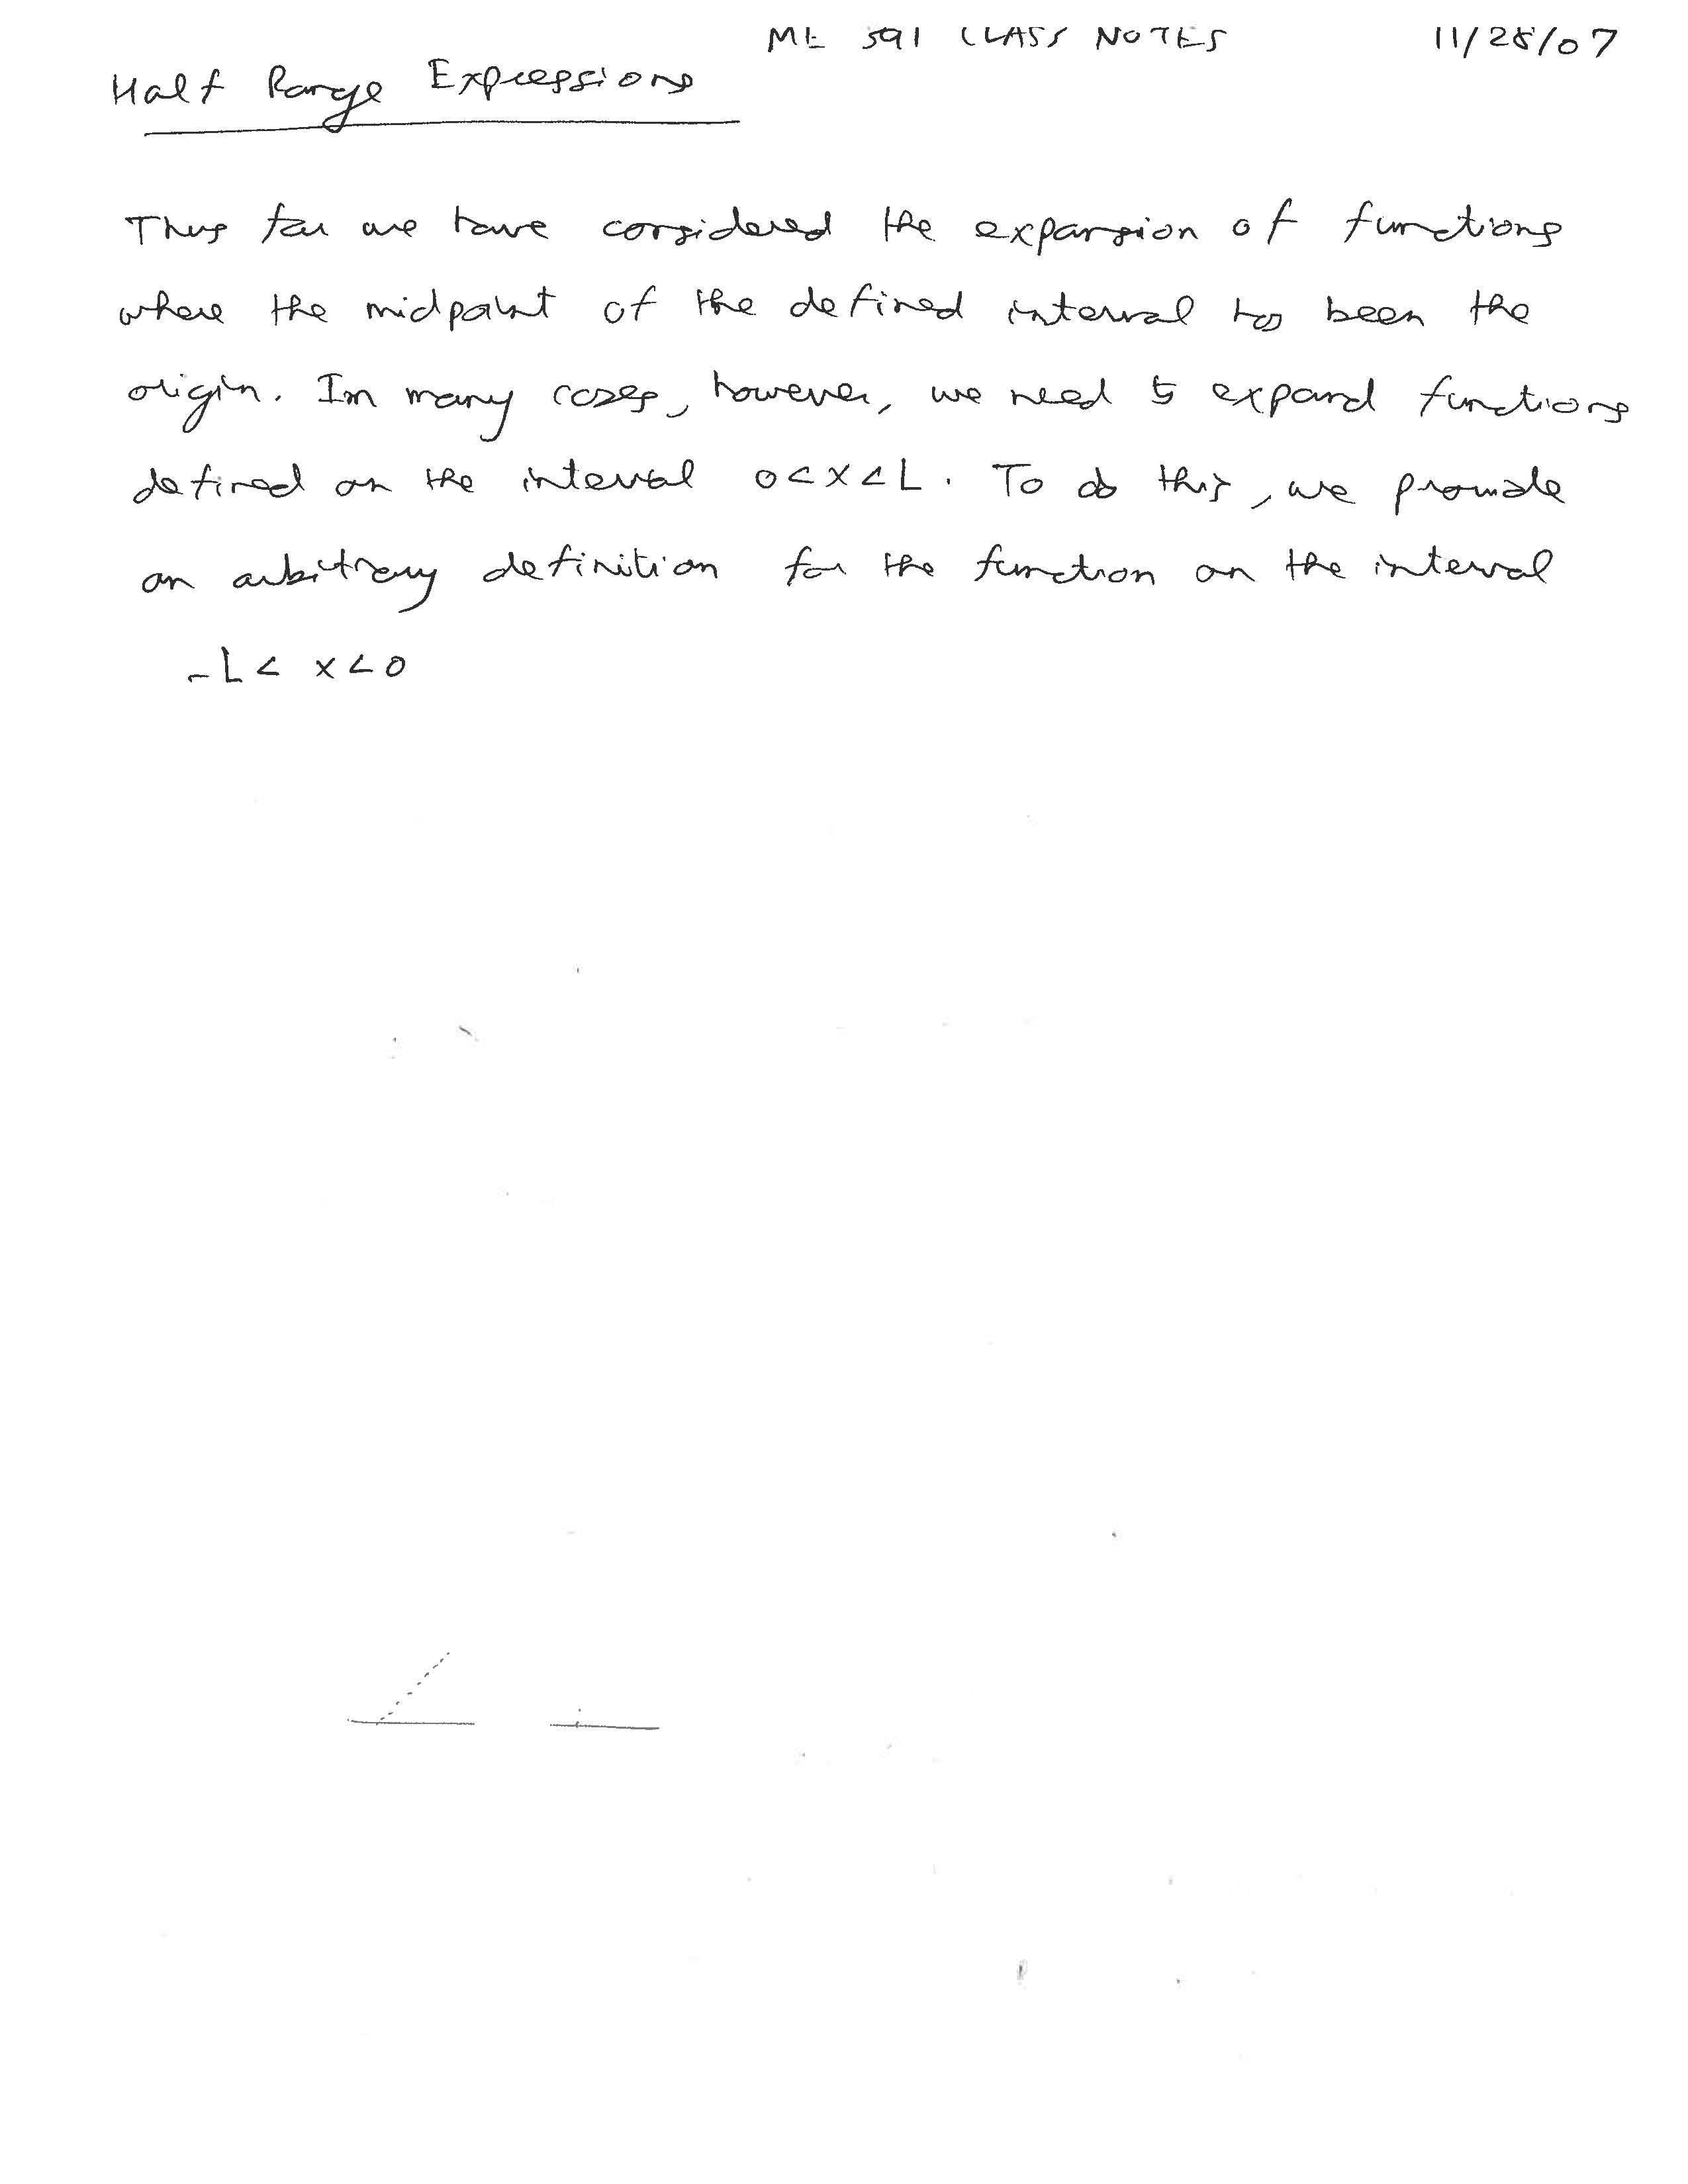 ME 591 CLASS NOTES 11/28/07
Half Range Expressions
Thus far we have considered the expansion of functions
where the midpoint of the defined interval has been the
origin. In many cases, however, we need to expand functions
defined on the interval 0<x<L. To do this, we provide
an arbitrary definition for the function on the interval
-L < x < 0